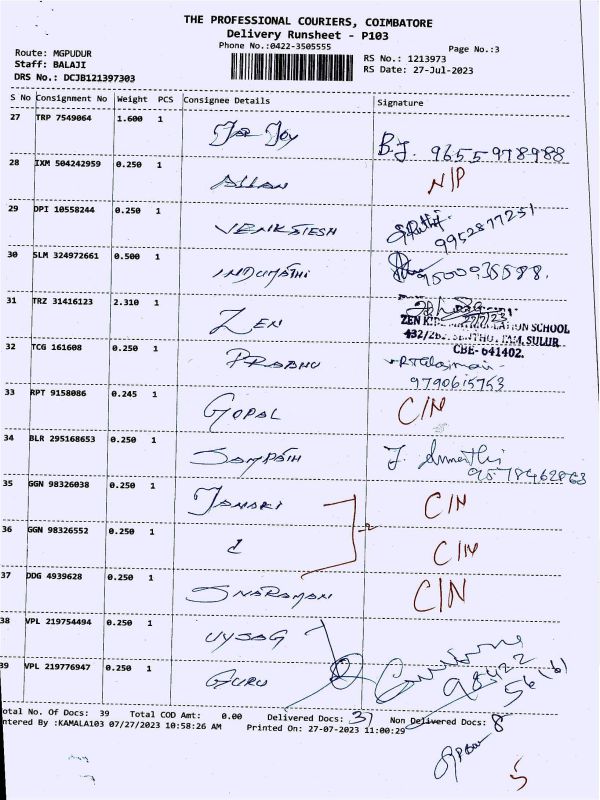 THE PROFESSIONAL COURIERS, COIMBATORE
Delivery Runsheet - P103
Phone No.:0422-3505555
Page No.:3
Route: MGPUDUR
RS No.: 1213973
Staff: BALAJI
RS Date: 27-Jul-2023
DRS No.: DCJB121397303
S No Consignment No Weight PCS Consignee Details Signature
27 TRP 7549064 1.600 1 Joy B.J. 9655978988
28 IXM 504242959 0.250 1 ALLAN N/P
29 DPI 10558244 0.250 1 VENKATESH 9952877251
30 SLM 324972661 0.500 1 INDUMATHI 9500035588.
31 TRZ 31416123 2.310 1 ZEN
ZEN SCHOOL
SULUR
CBE- 641402.
32 TCG 161608 0.250 1 PRABHU
9790615753
33 RPT 9158086 0.245 1 GOPAL C/N
34 BLR 295168653 0.250 1 SAMPATH J.
9578462863
35 GGN 98326038 0.250 1 C/N
36 GGN 98326552 0.250 1 C/N
37 DDG 4939628 0.250 1 C/N
38 VPL 219754494 0.250 1
39 VPL 219776947 0.250 1 GURU
98422
56
otal No. Of Docs: 39 Total COD Amt: 0.00 Delivered Docs: 31 Non Delivered Docs: 8
ntered By :KAMALA103 07/27/2023 10:58:26 AM Printed On: 27-07-2023 11:00:29
5